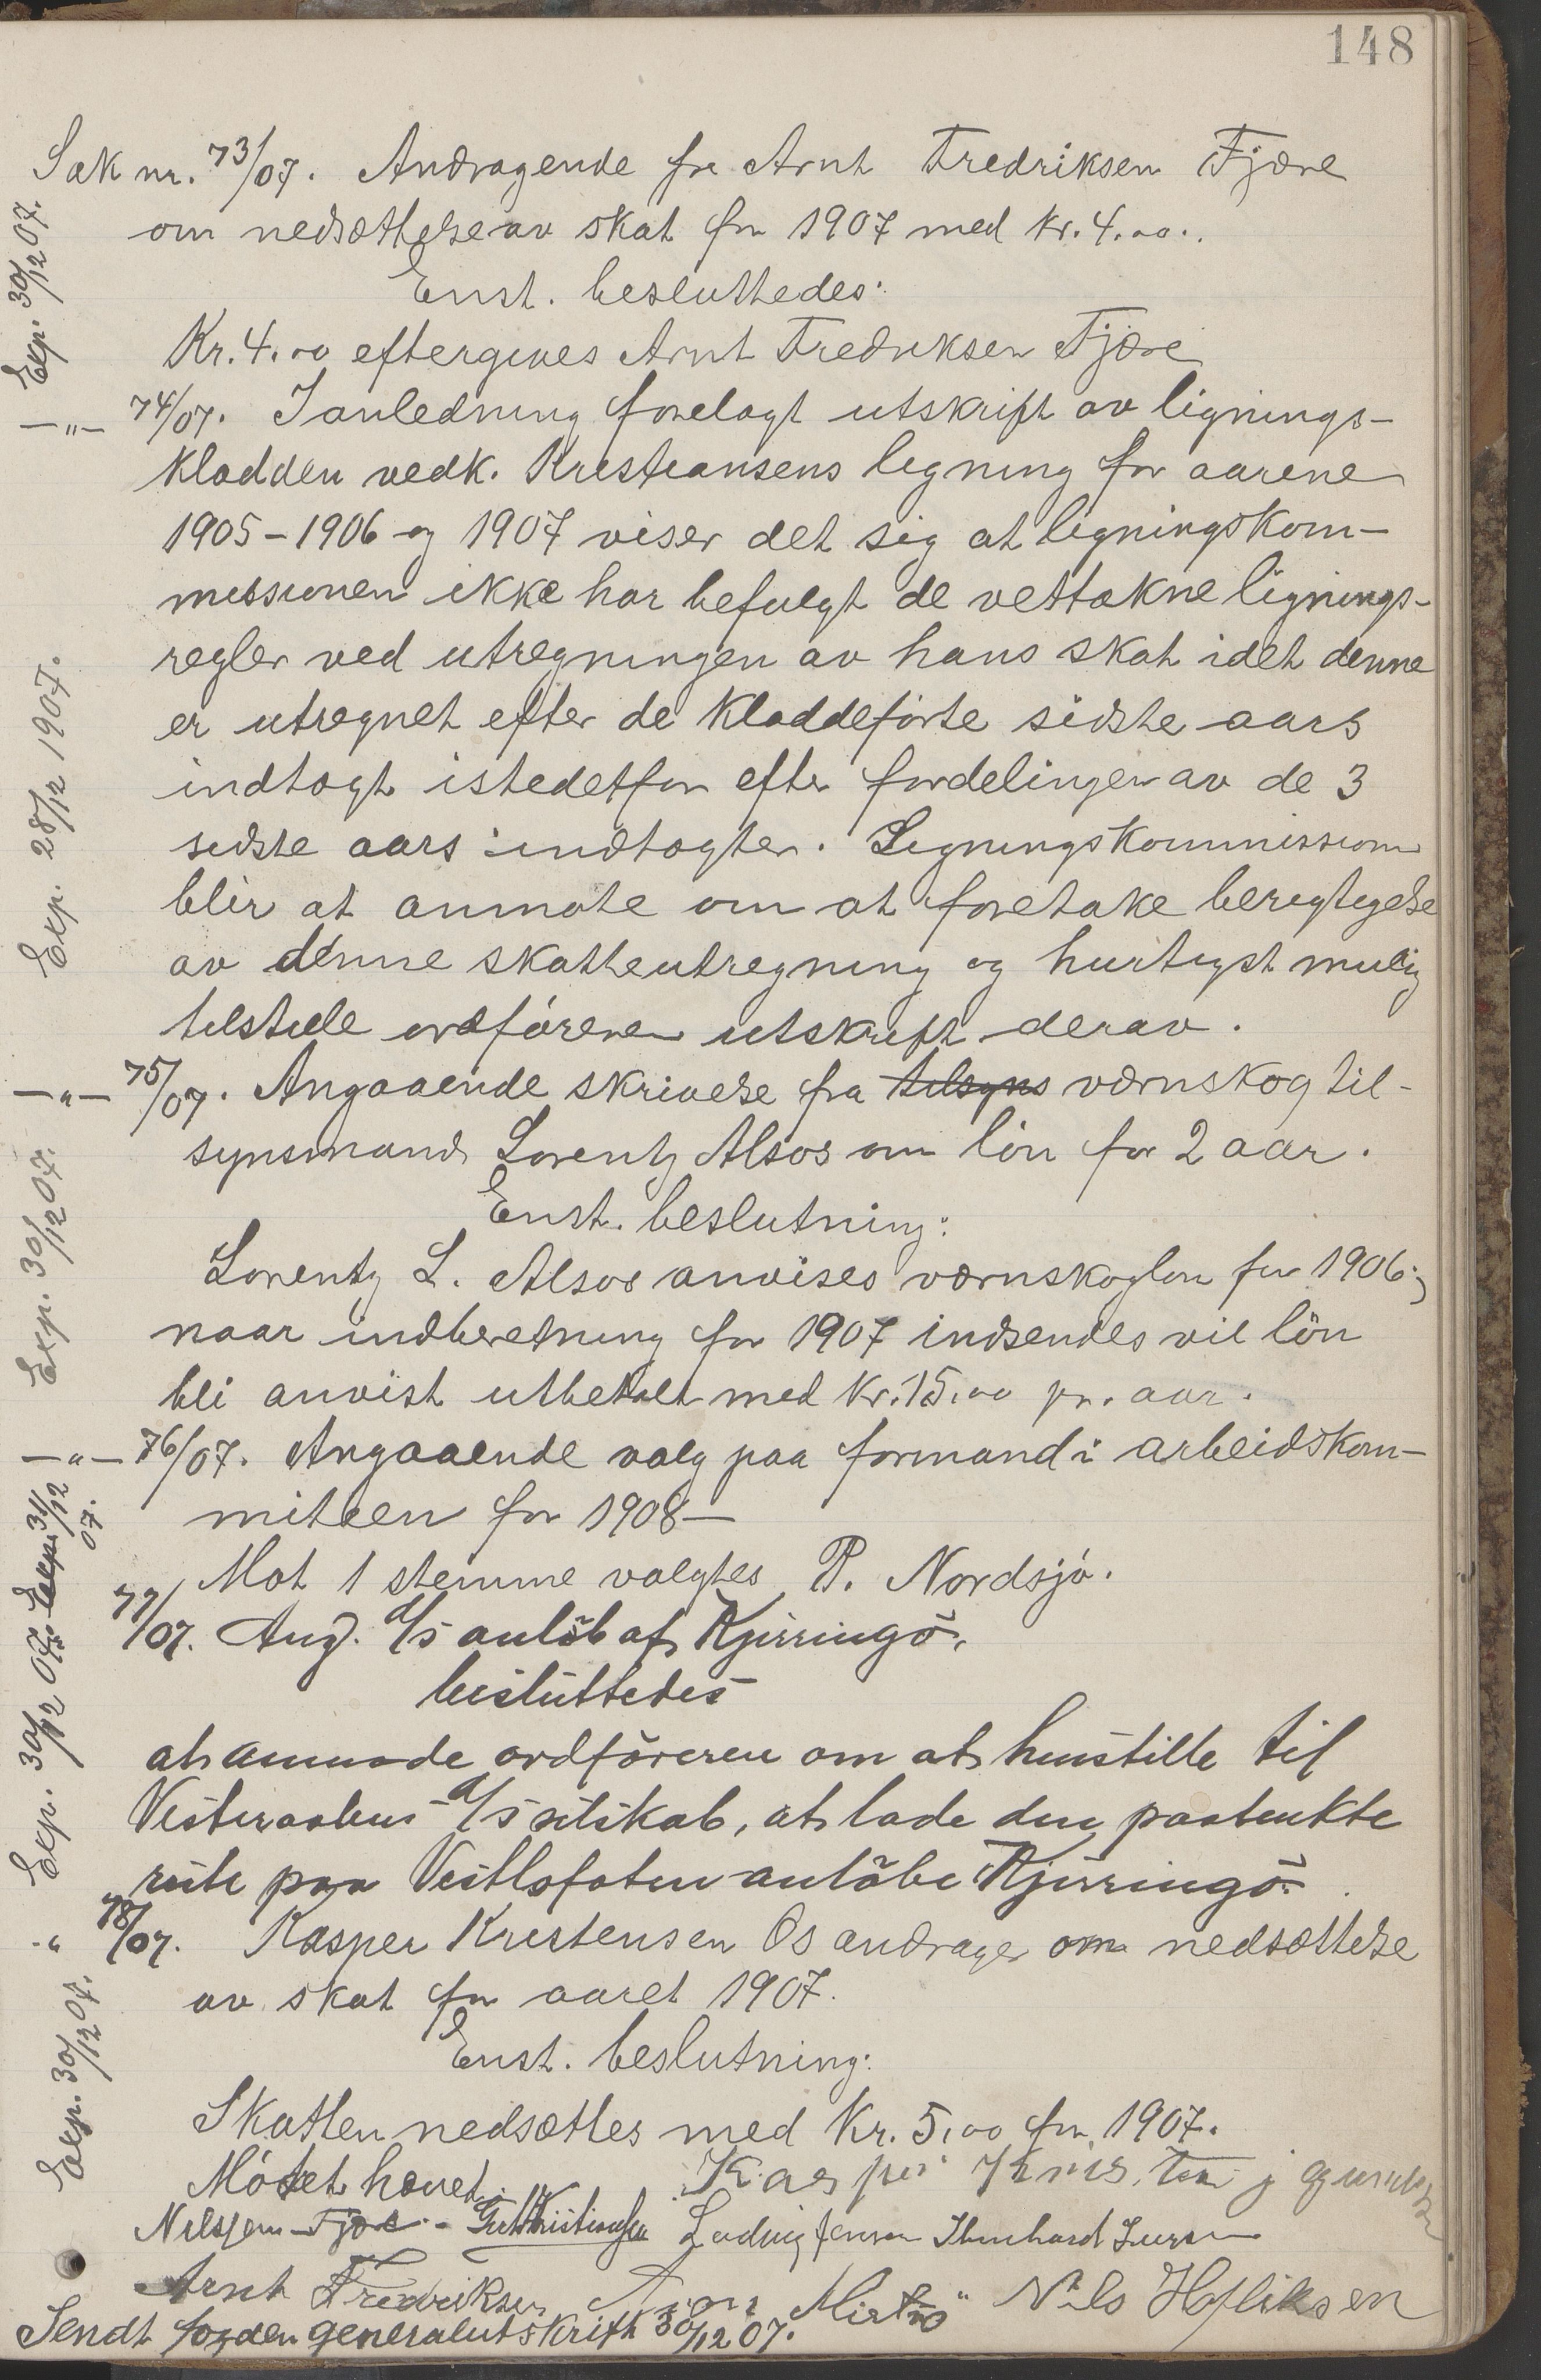 148
Sak nr. 73/07. Andragende fra Arnt Fredriksen Fjære
om nedsættelse av skat for 1907 med kr. 4.00.
Enst. besluttedes:
Kr. 4.00 eftergives Arnt Fredriksen Fjære
Exp. 30/12 07.
—"— 74/07. I anledning forelagt utskrift av lignings-
kladden vedk. Kristiansens ligning for aarene
1905-1906 og 1907 viser det sig at ligningskom-
missionen ikke har befulgt de vettakne lignings-
regler ved utregningen av hans skat idet denne
er utregnet efter de kladdeförte sidste aars
indtægt istedetfor efter fordelingen av de 3
sidste aars indtægter. Ligningskommission
blir at anmote om at foretake berigtigelse
av denne skatteutregning og hurtigst mulig
tilstille ordföreren utskrift derav.
Exp. 28/12 1907.
—"— 75/07. Angaaende skrivelse fra tilsyns værnskog til-
synsmand Lorentz Alsos om lön for 2 aar.
Enst. beslutning:
Lorentz L. Alsos anvises værnskoglön for 1906;
naar indberetning for 1907 indsendes vil lön
bli anvist utbetalt med Kr. 15.00 pr. aar.
Exp. 30/12 07.
—"— 76/07. Angaaende valg paa formand i arbeidskom-
miteen for 1908—
Mot 1 stemme valgtes P. Nordsjö.
Exp. 31/12 07.
77/07. Ang. d/s anlöb af Kjerringö.
besluttedes
at anmode ordföreren om at henstille til
Vesteraalens d/s selskab, at lade den paatænkte
rute paa Vestlofoten anlöbe Kjerringö.
Exp. 30/12 07.
" 78/07. Kasper Kristensen Os andrager om nedsættelse
av skat for aaret 1907.
Enst. beslutning:
Skatten nedsættes med Kr. 5,00 for 1907.
Exp. 30/12 07.
Mötet hævet.
Kasper
Nils Jens Fjære Kristiansen Ludvig Jensen
Arnt Fredriksen Nils Hofliksen
Sendt foged generalutskrift 30/12 07.